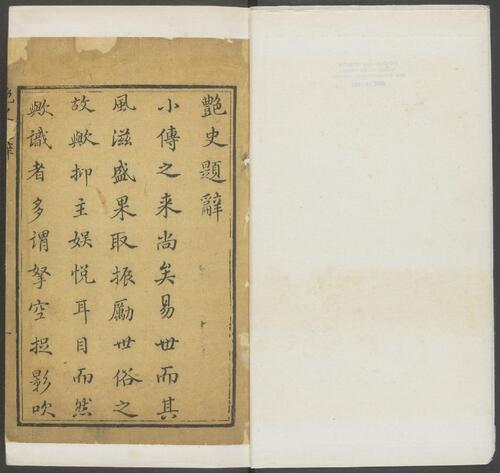 艷史題辭
小傳之来尚矣易世而其
風滋盛果取振勵世俗之
故歟抑主娱悦耳目而然
歟識者多謂拏空捉影吹